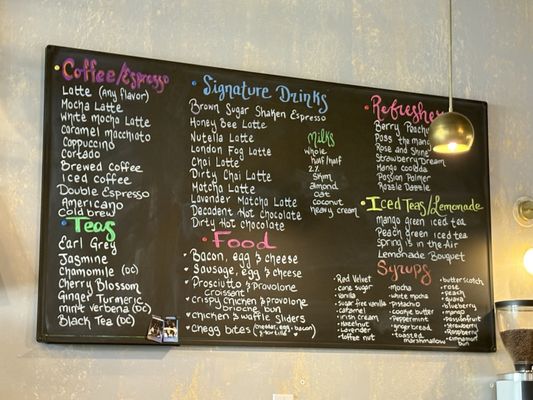 Coffee/Espresso
Latte (Any flavor)
Mocha Latte
White Mocha Latte
Caramel macchiato
Cappuccino
Cortado
Brewed coffee
Iced coffee
Double Espresso
Americano
Cold brew
Teas
Earl Grey
Jasmine
Chamomile (DC)
Cherry Blossom
Ginger Turmeric
mint verbena (DC)
Black Tea (DC)
Signature Drinks
Brown Sugar Shaken Espresso
Honey Bee Latte
Nutella Latte
London Fog Latte
Chai Latte
Dirty Chai Latte
Matcha Latte
Lavender Matcha Latte
Decadent Hot chocolate
Dirty Hot chocolate
Milks
whole
half/half
2%
Skim
almond
oat
coconut
heavy cream
Food
Bacon, egg & cheese
Sausage, egg & cheese
Prosciutto & provolone
Croissant
crispy chicken & provolone
Brioche bun
chegg bites (cheddar, egg, bacon)
chicken & waffle Sliders
Refreshers
Berry Peachy
Pass the mango
Rose and Shine
Strawberry Dream
Mango coolada
Passion Palmer
Rozale Dazale
Iced Teas/Lemonade
Mango green iced tea
Peach green iced tea
Spring is in the Air
Lemonade Bouquet
Syrups
Red Velvet
cane sugar
Vanilla
sugar free vanilla
caramel
irish cream
Hazelnut
Lavender
toffee nut
mocha
white mocha
pistachio
cookie butter
Peppermint
gingerbread
toasted
marshmallow
butterscotch
rose
peach
guava
blueberry
mango
passionfruit
strawberry
Raspberry
cinnamon
bun